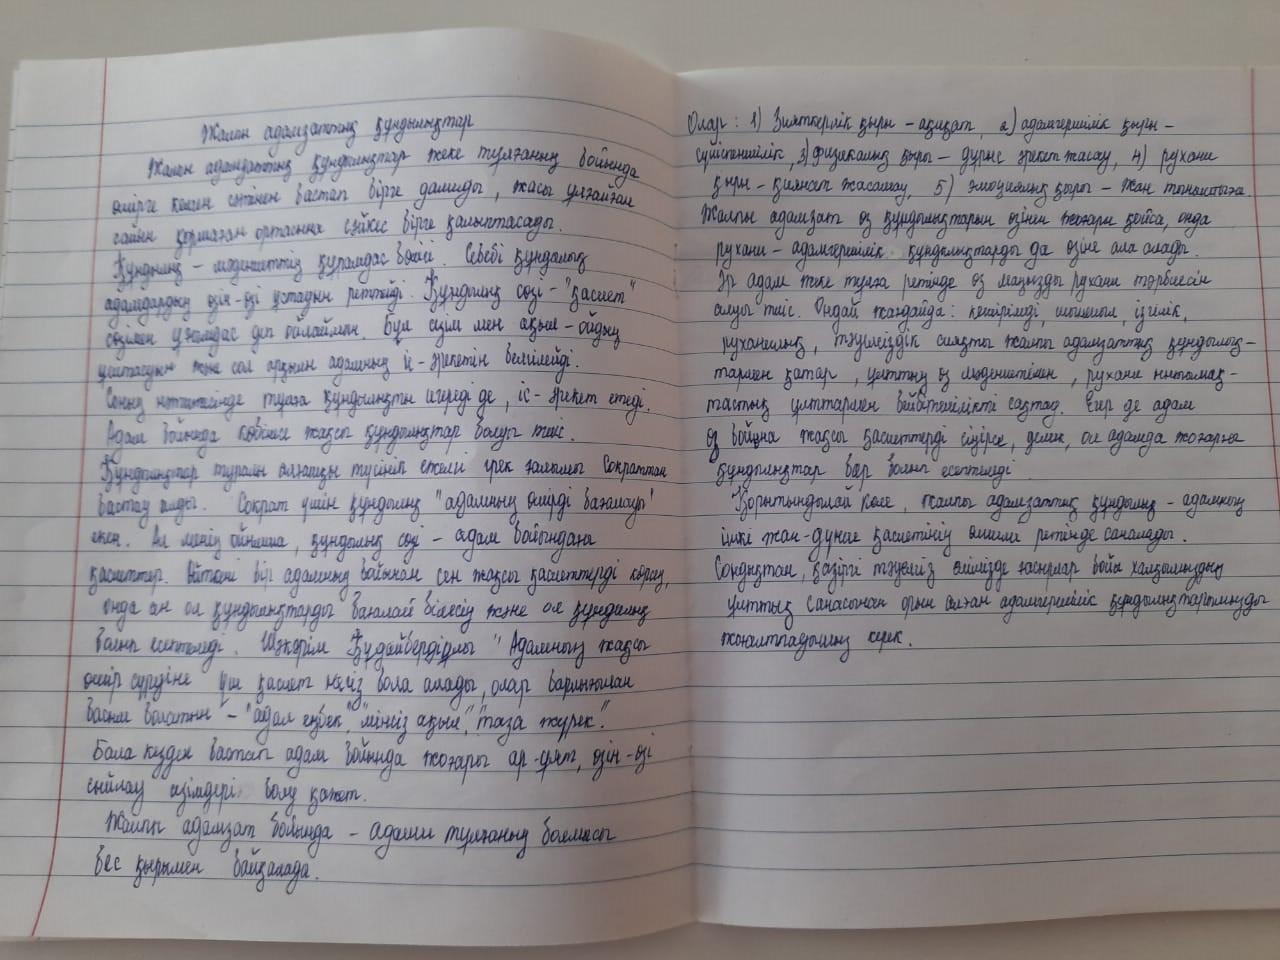 Жалпы адамзаттық құндылықтар
Жалпы адамзаттық құндылықтар жеке тұлғаның бойында
өмірге келген сәтінен бастап бірге дамиды, жасы ұлғайған
сайын қоршаған ортасына сәйкес бірге қалыптасады.
Құндылық – мәдениеттің құрамдас бөлігі. Себебі құндылық
адамдардың өзін-өзі ұстауын реттейді. Құндылық сөзі – "қасиет"
сөзімен ұғымдас деп ойлаймын. Бұл сезім мен ақыл-ойдың
ұштасуын және сол арқылы адамның іс-әрекетін белгілейді.
Соның нәтижесінде тұлға құндылықты игереді де, іс-әрекет етеді.
Адам бойында көбінесе жақсы құндылықтар болуы тиіс.
Құндылықтар туралы алғашқы түсінік ежелгі грек ғалымы Сократтан
бастау алды. Сократ үшін құндылық "адамның өмірді бағалауы"
екен. Ал менің ойымша, құндылық сөзі – адам бойындағы
қасиеттер. Өйткені бір адамның бойынан сен жақсы қасиеттерді көрсең,
онда сен ол құндылықтарды бағалай білесің және ол құндылық
болып есептеледі. Шәкәрім Құдайбердіұлы "Адамның жақсы
өмір сүруіне үш қасиет негіз бола алады, олар барлығынан
басым болатын – "адал еңбек", "мінсіз ақыл", "таза жүрек".
Бала кезден бастап адам бойында жоғарғы ар-ұят, өзін-өзі
сыйлау сезімдері болу қажет.
Жалпы адамзат бойында – адами тұлғаның болмысы
бес қырымен байқалада.
Олар: 1) Зияткерлік қыры – ақиқат, 2) адамгершілік қыры –
сүйіспеншілік, 3) физикалық қыры – дұрыс әрекет жасау, 4) рухани
қыры – қиянат жасамау, 5) эмоциялық қыры – жан тыныштығы.
Жалпы адамзат өз құндылықтарын өзінен жоғары қойса, онда
рухани – адамгершілік құндылықтарды да өзіне ала алады.
Әр адам жеке тұлға ретінде өз маңызды рухани тәрбиесін
алуы тиіс. Ондай жағдайда: кешірімді, ізгілік,
руханилық, тәуелсіздік сияқты жалпы адамзаттық құндылық-
тармен қатар, ұлттың өз мәдениетімен, рухани ынтымақ-
тастық ұлттармен бейбітшілікті сақтау. Егер де адам
өз бойына жақсы қасиеттерді сіңірсе, демек, ол адамда жоғарғы
құндылықтар бар болып есептеледі.
Қорытындылай келе, жалпы адамзаттық құндылық – адамның
ішкі жан-дүние қасиетінің өлшемі ретінде саналады.
Сондықтан, қазіргі тәуелсіз елімізде ғасырлар бойы халқымыздың
ұлттық санасынан орын алған адамгершілік құндылықтарымызды
жоғалтпауымыз керек.